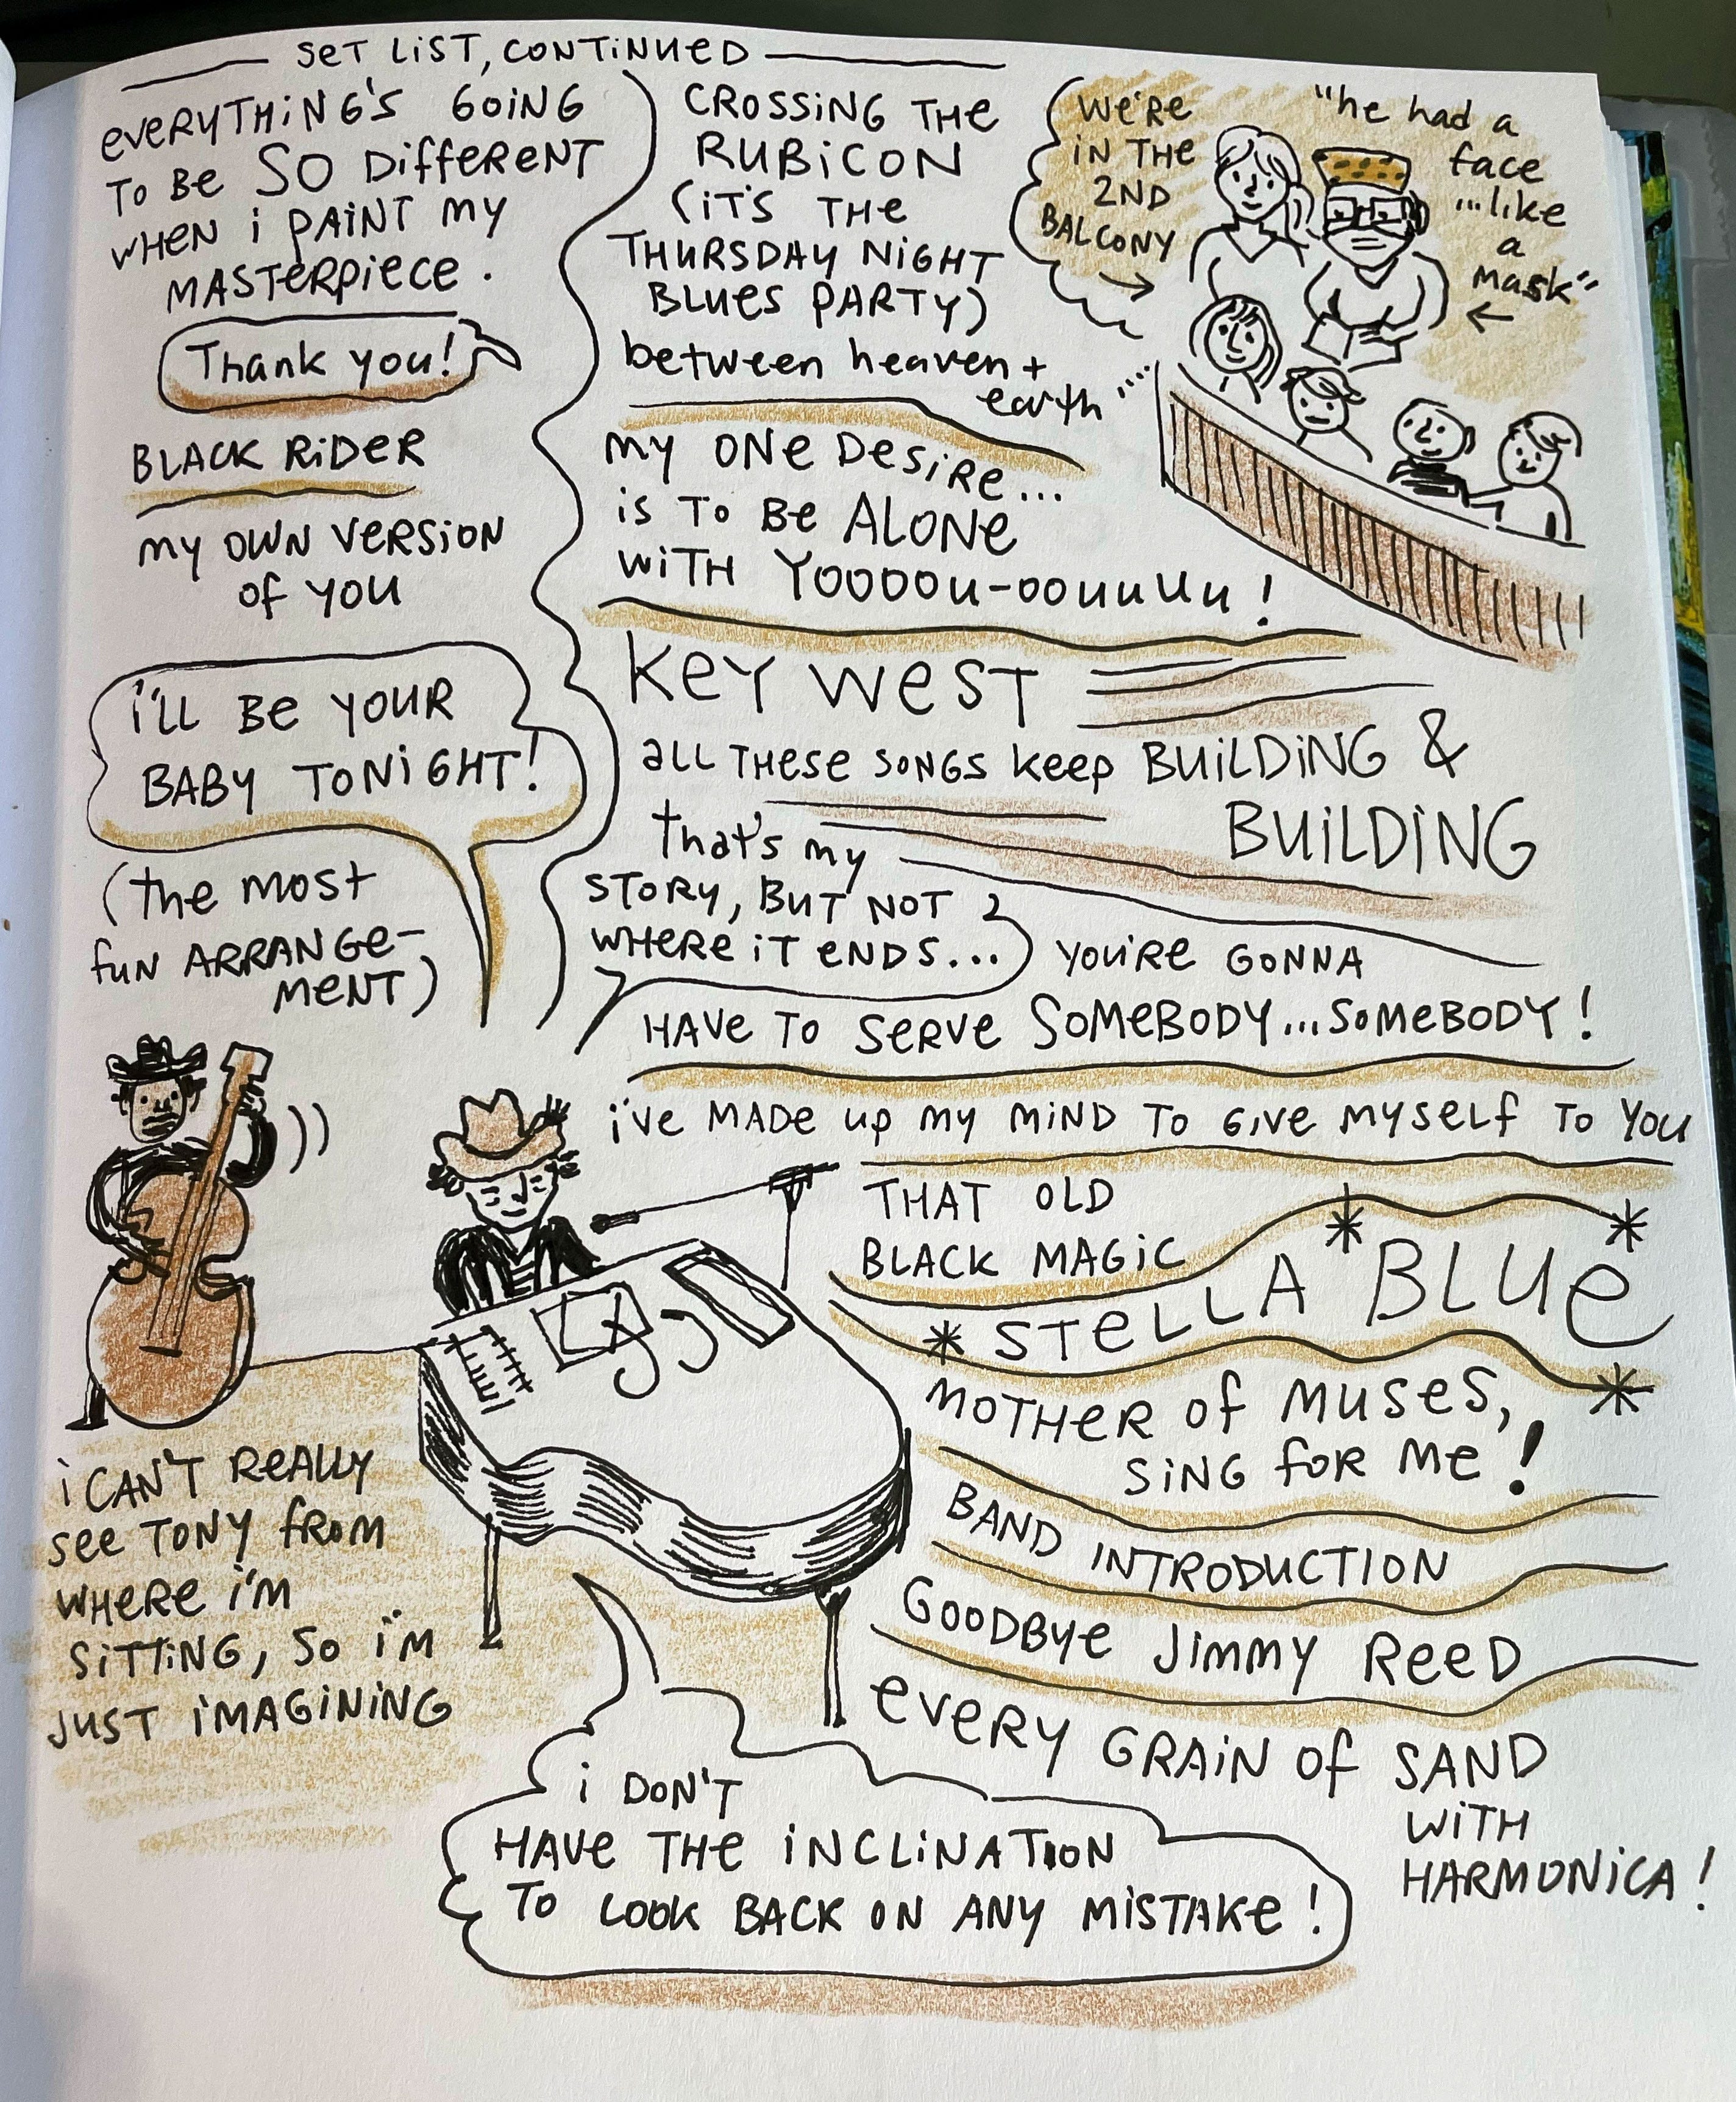 SET LIST, CONTINUED
EVERYTHING'S GOING
TO BE SO DIFFERENT
WHEN I PAINT MY
MASTERPIECE.
Thank you!
BLACK RIDER
MY OWN VERSION
OF YOU
I'LL BE YOUR
BABY TONIGHT!
(the most
fun ARRANGE-
MENT)
I CAN'T REALLY
SEE TONY FROM
WHERE I'M
SITTING, SO I'M
JUST IMAGINING
CROSSING THE
RUBICON
(IT'S THE
THURSDAY NIGHT
BLUES PARTY)
between heaven +
earth
WE'RE
IN THE
2ND
BALCONY
"he had a
face
...like
a
mask"
MY ONE DESIRE...
IS TO BE ALONE
WITH YOOOOU-OOUUUU!
KEY WEST
ALL THESE SONGS KEEP BUILDING &
BUILDING
that's my
STORY, BUT NOT
WHERE IT ENDS...
YOU'RE GONNA
HAVE TO SERVE SOMEBODY...SOMEBODY!
I'VE MADE UP MY MIND TO GIVE MYSELF TO YOU
THAT OLD
BLACK MAGIC
* STELLA * BLUE *
MOTHER OF MUSES, *
SING FOR ME!
BAND INTRODUCTION
GOODBYE JIMMY REED
EVERY GRAIN OF SAND
WITH
HARMONICA!
I DON'T
HAVE THE INCLINATION
TO LOOK BACK ON ANY MISTAKE!